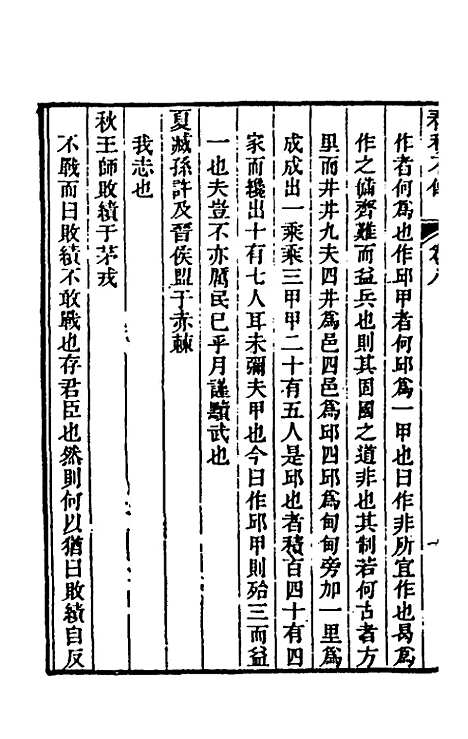 作者何爲也作邱甲者何邱爲一甲也曰作非所宜作也曷爲
作之備齊難而益兵也則其固國之道非也其制若何古者方
里而井井九夫四井爲邑四邑爲邱四邱爲甸甸旁加一里爲
成成出一乘乘三甲甲二十有五人是邱也者積百四十有四
家而纔出十有七人耳未彌夫甲也今曰作邱甲則殆三而益
一也夫豈不亦厲民已乎月謹黷武也
夏臧孫許及晉侯盟于赤棘
我志也
秋王師敗績于茅戎
不戰而曰敗績不敢戰也存君臣也然則何以猶曰敗績自反